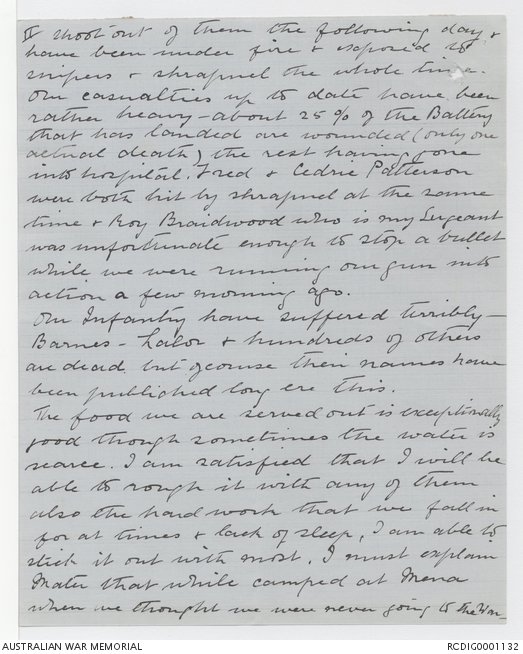 IV shoot out of them the following day &
have been under fire & exposed to
snipers & shrapnel the whole time.
Our casualties up to date have been
rather heavy – about 25% of the Battery
that has landed are wounded (only one
actual death) the rest having gone
into hospital. Fred & Cedric Patterson
were both hit by shrapnel at the same
time & Roy Braidwood who is my Sergeant
was unfortunate enough to stop a bullet
while we were running our gun into
action a few morning ago.
Our Infantry have suffered terribly –
Barnes – Lalor & hundreds of others
are dead but ofcourse their names have
been published long ere this.
The food we are served out is exceptionally
good though sometimes the water is
scarce. I am satisfied that I will be
able to rough it with any of them
also the hard work that we fall in
for at times & lack of sleep, I am able to
stick it out with most. I must explain
Mater that while camped at Mena
when we thought we were never going to the War –
AUSTRALIAN WAR MEMORIAL
RCDIG0001132